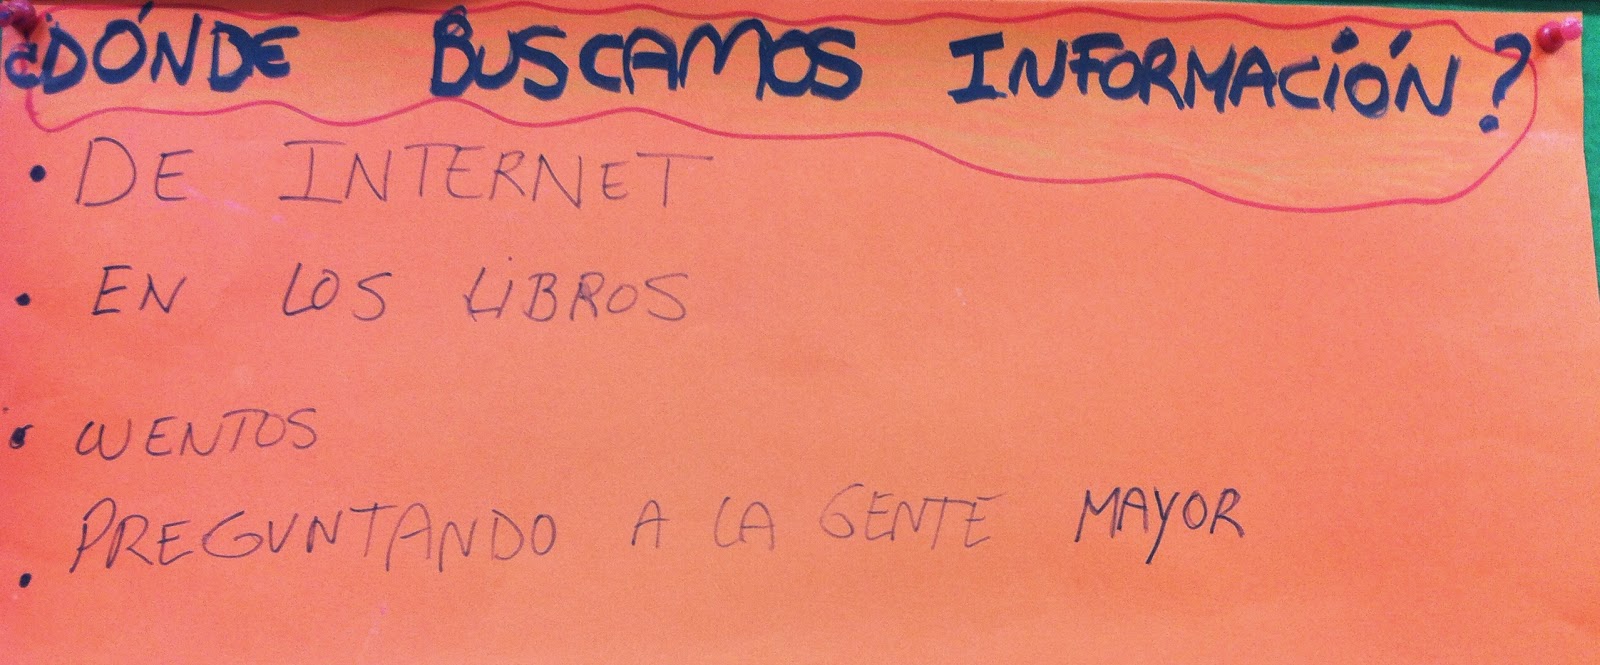 ¿DÓNDE BUSCAMOS INFORMACIÓN?
• DE INTERNET
• EN LOS LIBROS
• CUENTOS
• PREGUNTANDO A LA GENTE MAYOR